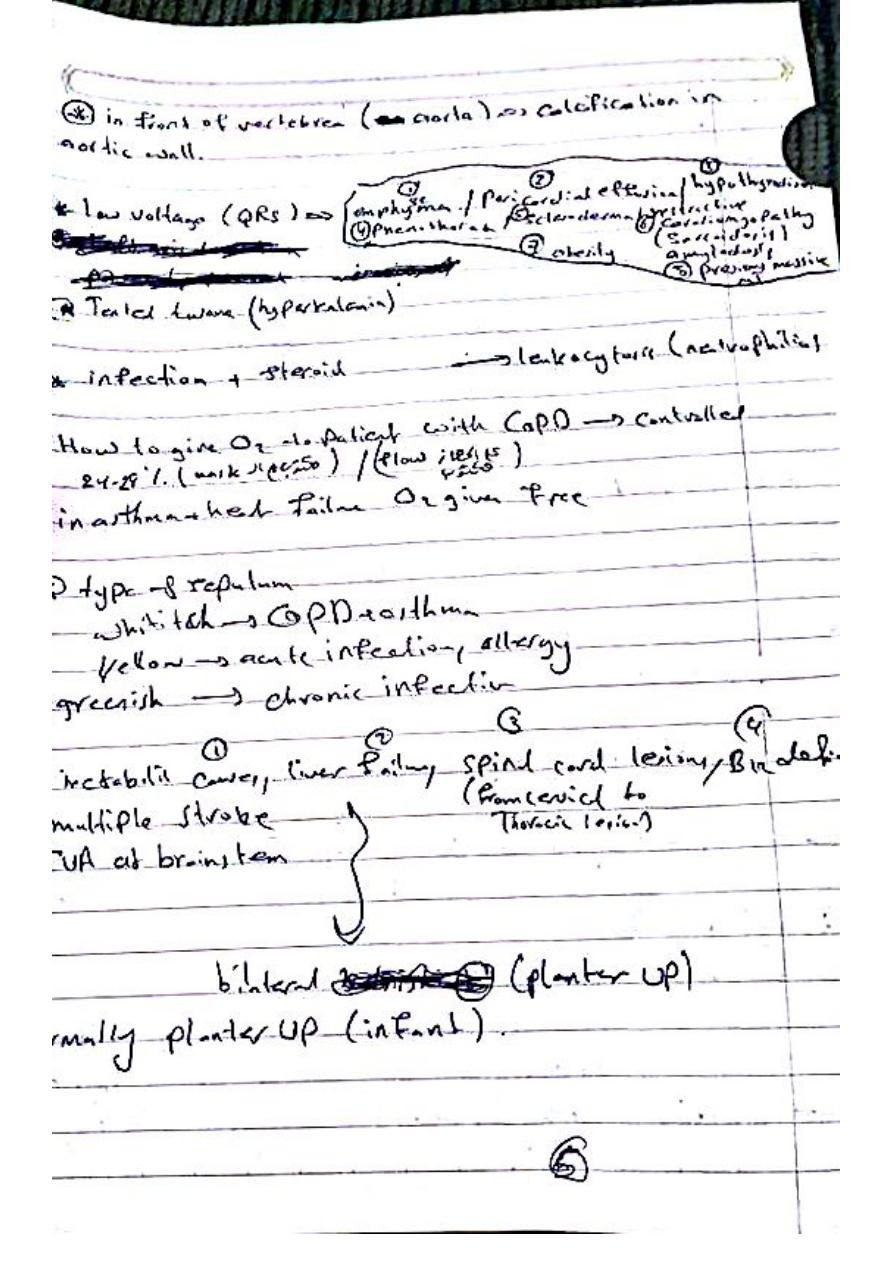 * in front of vertebrea (aorta) => calcification in
aortic wall.
* low voltage (QRS) =>
① emphysema / ② Pericardial effusion / ③ hypothyroidism
④ Pneumothorax / ⑤ scleroderma / ⑥ restrictive
cardiomyopathy
(Sarcoidosis)
amyloidosis
⑦ obesity
⑧ previous massive
MI
* Tented twave (hyperkalemia)
* infection + steroid → leukocytosis (neutrophilia)
How to give O2 to patient with COPD → controlled
24-28 % (mask) / (flow)
in asthma + heart failure O2 given free
type of seputum
whitish → COPD + asthma
Yellow → acute infection, allergy
greenish → chronic infection
① ② ③ ④
metabolic causes, liver failure, spinal cord lesions, B12 defi
(from cervical to
Thoracic lesion)
multiple stroke
CVA at brainstem
bilateral (planter up)
rmally planter up (infant).
5